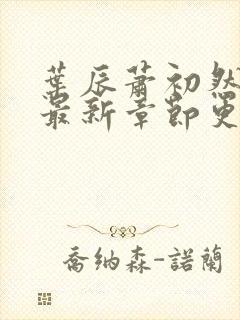 葉辰蕭初然
最新章節更
喬納森-諾蘭